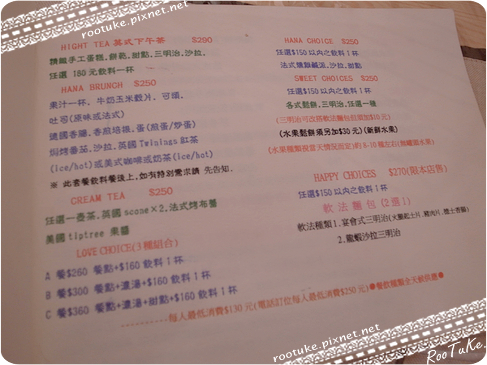 rootuke.pixnet.net
HIGHT TEA 英式下午茶 $290
精緻手工蛋糕, 餅乾, 甜點, 三明治, 沙拉,
任選 160 元飲料一杯
HANA BRUNCH $250
果汁一杯, 牛奶玉米穀片, 可頌,
吐司(原味或法式)
德國香腸, 香煎培根, 蛋(煎蛋/炒蛋)
焗烤番茄, 沙拉, 英國 Twinings 紅茶
(ice/hot)或美式咖啡或奶茶(ice/hot)
※ 此套餐飲料餐後上, 如有特別需求請 先告知.
CREAM TEA $250
任選一壺茶, 英國 scone×2, 法式烤布蕾
美國 tiptree 果醬
LOVE CHOICE(3種組合)
A 餐$260 餐點+$160 飲料 1 杯
B 餐$300 餐點+濃湯+$160 飲料 1 杯
C 餐$360 餐點+濃湯+甜點+$160 飲料 1 杯
HANA CHOICE $250
任選$150 以內之飲料 1 杯
法式燻雞鹹派, 沙拉, 甜點
SWEET CHOICES $250
任選$150 以內之飲料 1 杯
各式鬆餅, 三明治, 任選一種
(三明治可改搭軟法麵包酌加$10 元)
(水果鬆餅須另加$30 元)(新鮮水果)
(水果種類視當天情況而定)約 8-10 種左右(無罐頭水果)
HAPPY CHOICES $270(限本店售)
任選$150 以內之飲料 1 杯
軟法麵包(2選1)
軟法種類 1. 宴會式三明治(火腿起士片, 雞肉片, 煙士香腸)
2. 龍蝦沙拉三明治
每人最低消費$130 元(電話訂位每人最低消費$250 元)●餐飲種類全天候供應●
rootuke.pixnet.net
RooTuKe.